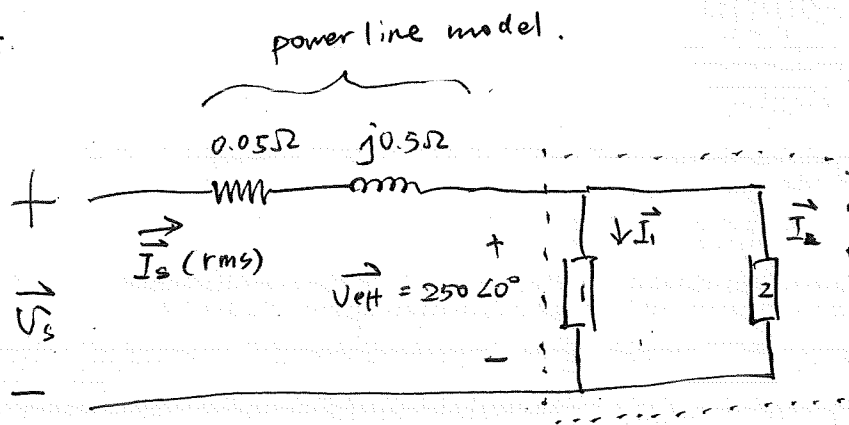 power line model.
0.05Ω j0.5Ω
+
I⃗s (rms)
+
V⃗eff = 250∠0°
↓I⃗1
I⃗2
1
2
V⃗s
−
−